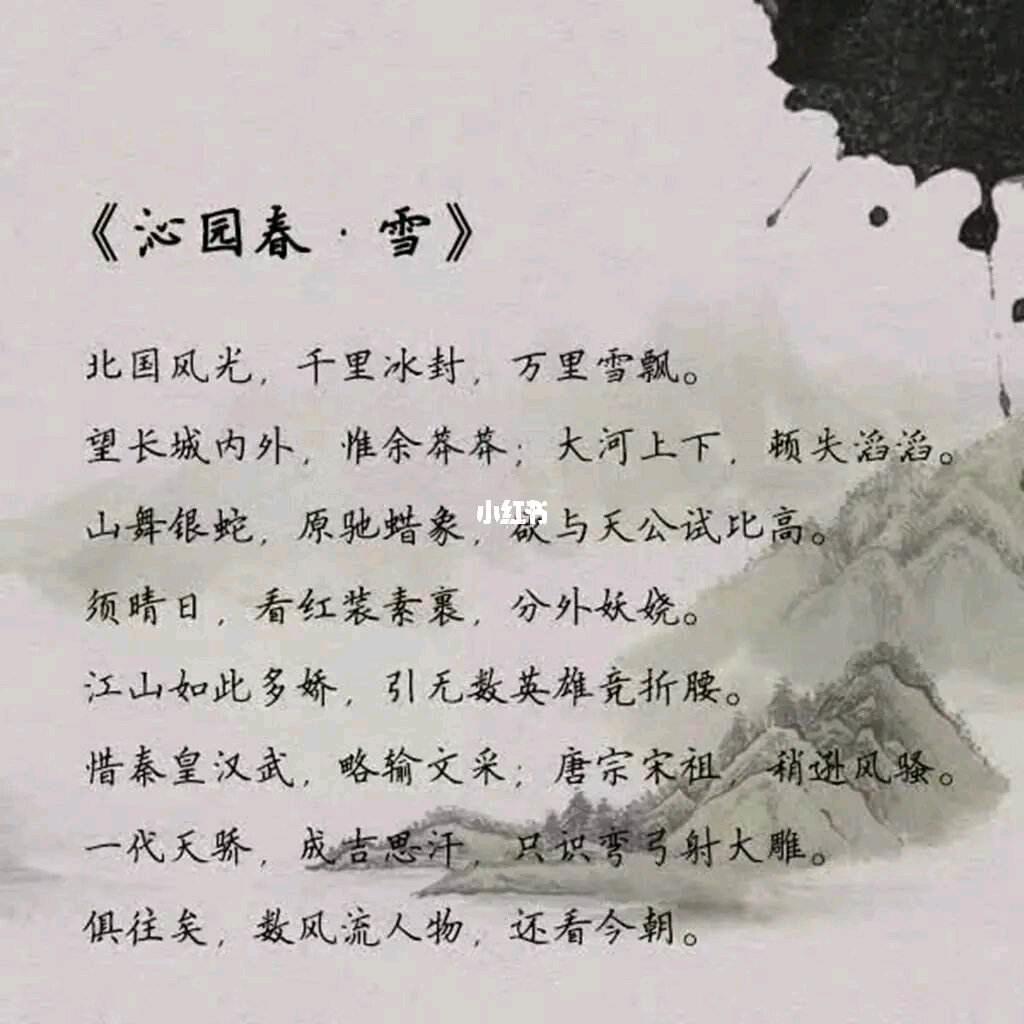 《沁园春·雪》
北国风光，千里冰封，万里雪飘。
望长城内外，惟余莽莽；大河上下，顿失滔滔。
山舞银蛇，原驰蜡象，欲与天公试比高。
小红书
须晴日，看红装素裹，分外妖娆。
江山如此多娇，引无数英雄竞折腰。
惜秦皇汉武，略输文采；唐宗宋祖，稍逊风骚。
一代天骄，成吉思汗，只识弯弓射大雕。
俱往矣，数风流人物，还看今朝。